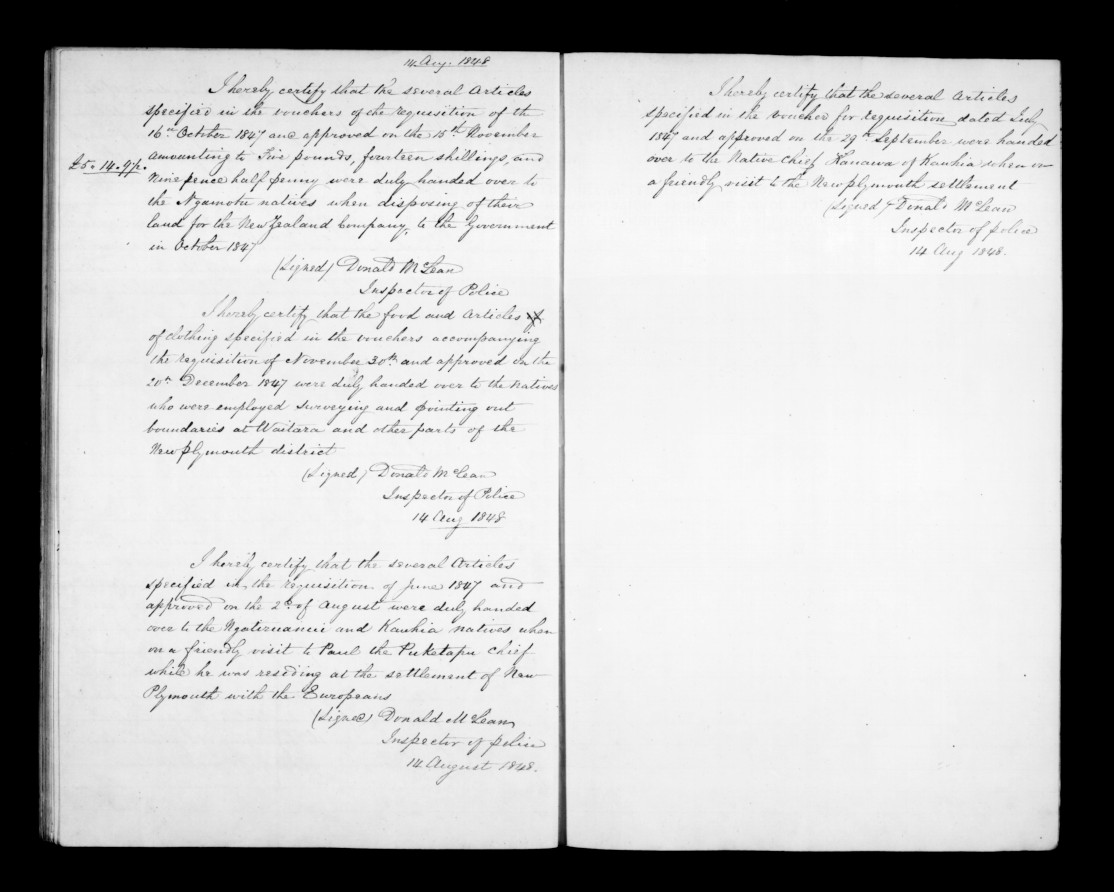 14 Aug. 1848
I hereby certify that the several Articles
specified in the vouchers of the requisition of the
16th October 1847 and approved on the 15th November
£5. 14. 9½. amounting to Five pounds, fourteen shillings, and
Nine pence half penny were duly handed over to
the Ngamotu natives when disposing of their
land for the New Zealand Company, to the Government
in October 1847
(Signed) Donald McLean
Inspector of Police
I hereby certify that the food and Articles
of clothing specified in the vouchers accompanying
the requisition of November 30th and approved on the
20th December 1847 were duly handed over to the natives
who were employed surveying and pointing out
boundaries at Waitara and other parts of the
New Plymouth district
(Signed) Donald McLean
Inspector of Police
14 Aug 1848
I hereby certify that the several Articles
specified in the requisition of June 1847 and
approved on the 2d. of August were duly handed
over to the and Kawhia natives when
on a friendly visit to Paul the Puketapu Chief
while he was residing at the settlement of New
Plymouth with the Europeans
(Signed) Donald McLean
Inspector of police
14 August 1848.
I hereby certify that the several Articles
specified in the voucher for requisition dated July
1847 and approved on the 29th September were handed
over to the Native Chief of Kawhia when on
a friendly visit to the New plymouth settlement
(Signed) Donald McLean
Inspector of police
14 Aug 1848.